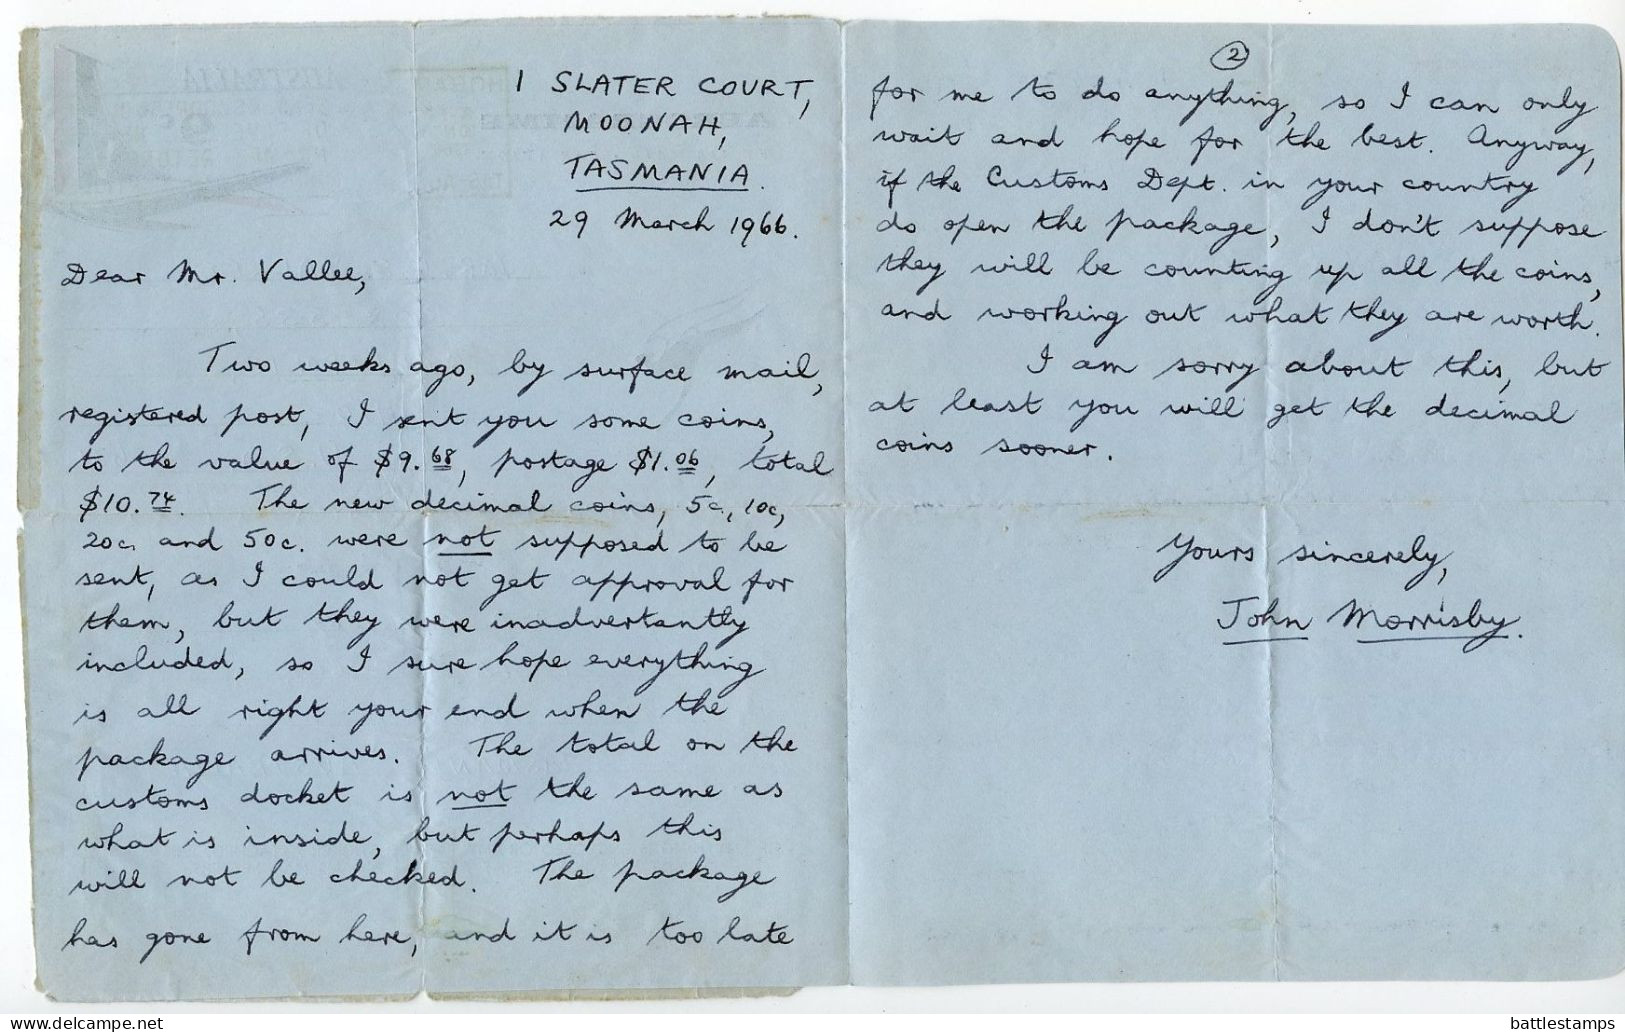 1 SLATER COURT,
MOONAH,
TASMANIA.
29 March 1966.
Dear Mr. Vallee,
Two weeks ago, by surface mail,
registered post, I sent you some coins,
to the value of $9.68, postage $1.06, total
$10.74. The new decimal coins, 5c., 10c,
20c. and 50c. were not supposed to be
sent, as I could not get approval for
them, but they were inadvertantly
included, so I sure hope everything
is all right your end when the
package arrives. The total on the
customs docket is not the same as
what is inside, but perhaps this
will not be checked. The package
has gone from here, and it is too late
2
for me to do anything, so I can only
wait and hope for the best. Anyway,
if the Customs Dept. in your country
do open the package, I don't suppose
they will be counting up all the coins,
and working out what they are worth.
I am sorry about this, but
at least you will get the decimal
coins sooner.
Yours sincerely,
John Morrisby.
www.delcampe.net
battlestamps